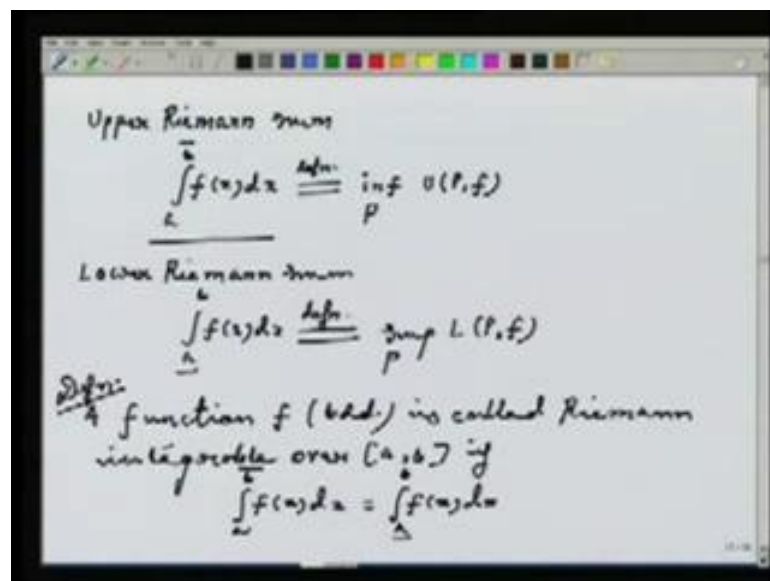 Upper Riemann sum
∫_a^b̅ f(x)dx =defn.= inf_P U(P,f)
Lower Riemann sum
∫_a̲^b f(x)dx =defn.= sup_P L(P,f)
Defn:
A function f (bdd.) is called Riemann
integrable over [a,b] if
∫_a^b̅ f(x)dx = ∫_a̲^b f(x)dx